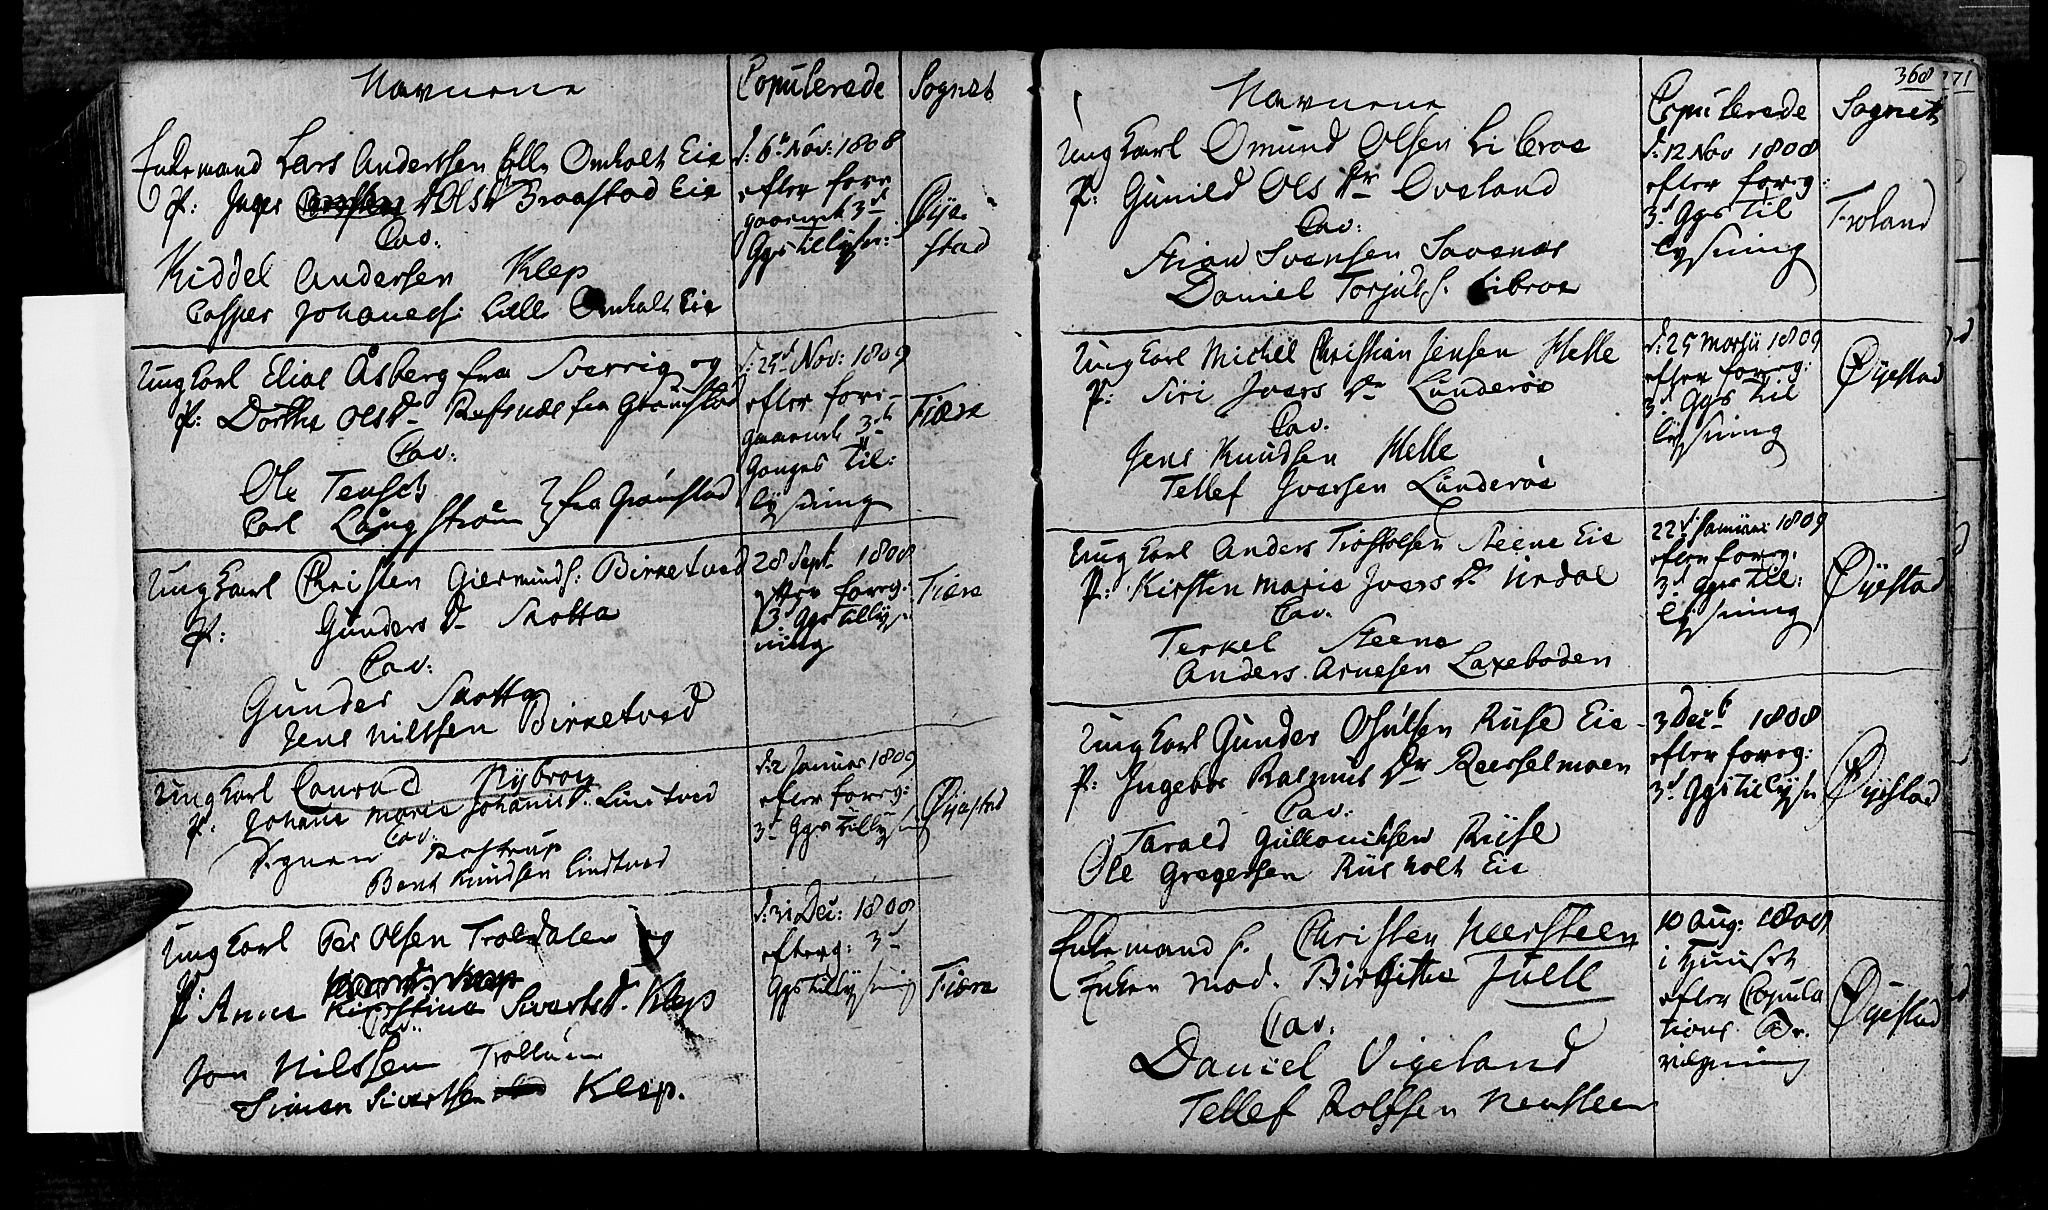 Navnene
Copulerede
Sognet
Enkemand Lars Andersen Lille Omholt Eie
P: Inger Ols Dr Braastad Eie
Cav:
Kiddel Andersen Klep
Casper Johanes: Lille Omholt Eie
d: 6te Nov: 1808
efter fore
gaaende 3de
Ggs tillysn:
Øye-
stad
Ungkarl Elias Åsberg fra Sverrig og
P: Dorthe Ols D. fra Grømstad
Cav:
Ole
Carl Långstrøm } fra Grømstad
d: 25d Nov: 1809
efter fore-
gaaende 3de
Ganges Til:
lysning
Fiære
Ungkarl Christen Giermunds: Birketved
P: Gunders D. Skotta
Cav:
Gunder Skotta
Jens Nilssen Birketved
28 Sept 1808
efter foreg:
3d Ggs tillys-
ning
Fiære
Ungkarl Conrad Nybroy
P. Johane Marie Johanis D. Lindtved
Cav:
Rostrup
Bent Knudsen Lindtved
d: 2 Januar 1809
efter foreg:
3d Ggs tillysn
Øyestad
Ungkarl Per Olsen Troldalen og
P: Anne Kirstina Siverts D. Klep
Cav:
Jon Nilssen
Simen Sivertsen Klep.
d: 31 Dec: 1808
efterg: 3d
Ggs tillysning
Fiære
368
171
Navnene
Copulerede
Sognet
Ungkarl Omund Olsen Libroe
P: Gunild Ols Dr Oveland
Cav:
Stian Svensen Savenes
Daniel Torjuls: Libroe
d: 12 Nov 1808
efter foreg:
3d Ggs til
lysning
Froland
Ungkarl Michel Christian Jensen Helle
P: Siri Ivers Dr Lunderøe
Cav.
Jens Knudsen Helle
Tellef Iversen Lunderøe
d: 25 Martii 1809
efter foreg:
3d Ggs til
lysning
Øyestad
Ungkarl Anders Trostolsen Steene Eie
P: Kirsten Marie Ivers D. Urdal
Cav.
Terkel Steene
Anders Arnesen Laxeboden
22d Januar 1809
efter foreg.
3d Ggs til:
lysning
Øyestad
Ungkarl Gunder Osulsen Rise Eie
P: Ingebor Rasmus Dr Reerselmoen
Cav:
Tarald Gullovichsen Riise
Ole Gregersen Riisholt Eie
3 Decb 1808
efter foreg:
3d Ggs tillysn
Øyestad
Enkemand S. Christen Neersteen
Enken Mad. Birgitte Juell
Cav.
Daniel Vigeland
Tellef Rolfsen Neersteen
10 Aug: 1808
i Huuset
efter Copula
tions Be-
vilgning
Øyestad